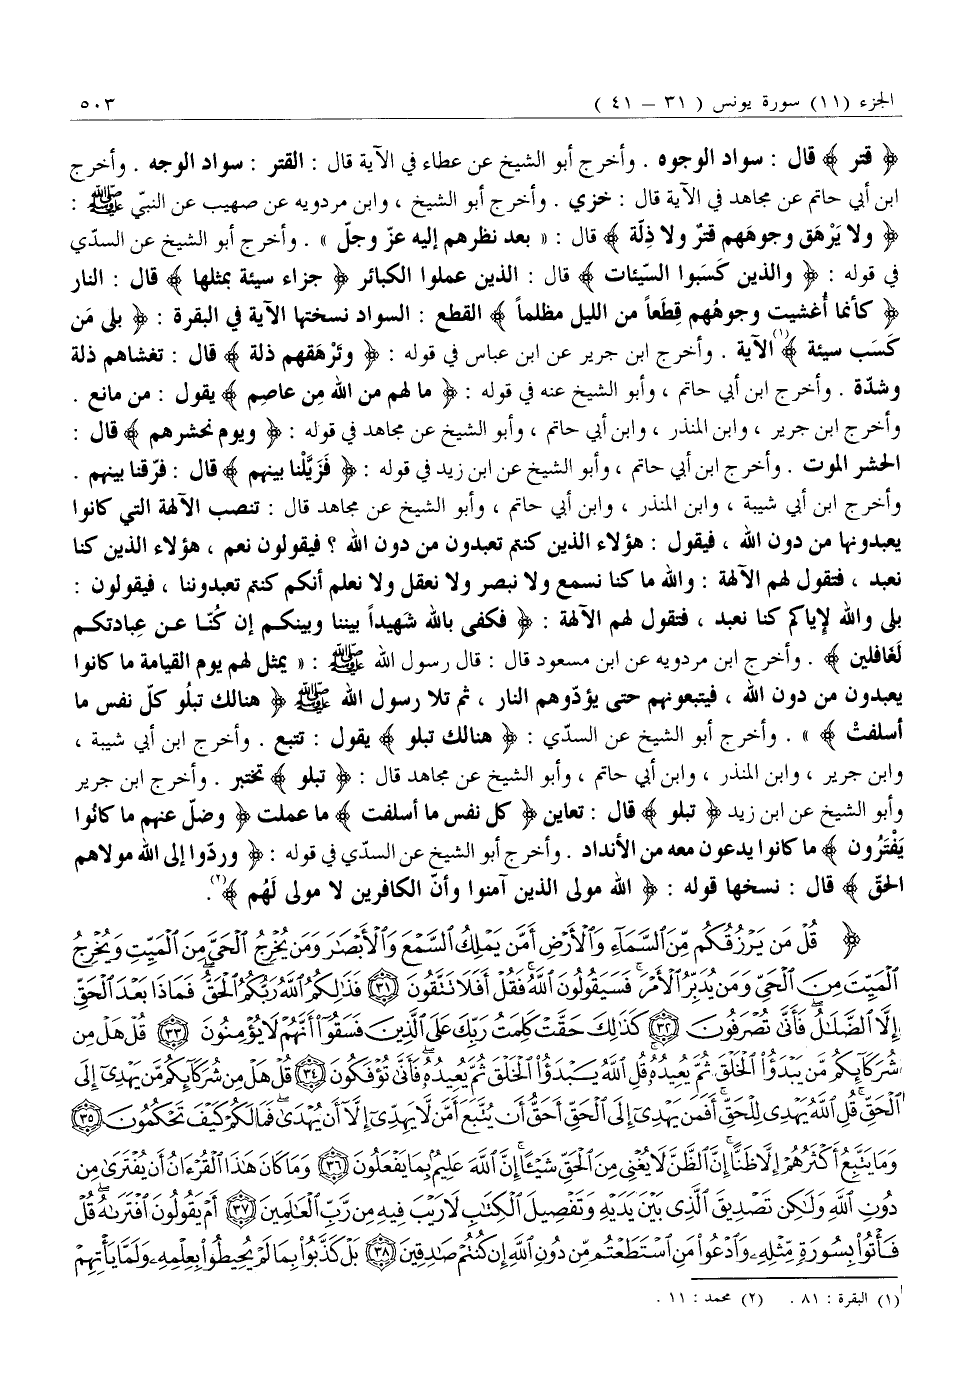 الجزء (١١) سورة يونس ( ٣١ – ٤١ ) ٥٠٣
﴿ قتر ﴾ قال : سواد الوجوه . وأخرج أبو الشيخ عن عطاء في الآية قال : القتر : سواد الوجه . وأخرج
ابن أبي حاتم عن مجاهد في الآية قال : خزي . وأخرج أبو الشيخ ، وابن مردويه عن صهيب عن النبيّ ﷺ :
﴿ ولا يَرْهَق وجوهَهم قترٌ ولا ذِلّة ﴾ قال : « بعد نظرهم إليه عزّ وجلّ » . وأخرج أبو الشيخ عن السدّي
في قوله : ﴿ والذين كَسَبوا السّيئات ﴾ قال : الذين عملوا الكبائر ﴿ جزاء سيئة بمثلها ﴾ قال : النار
﴿ كأنما أُغشيت وجوهُهم قِطَعاً من الليل مظلماً ﴾ القطع : السواد نسختها الآية في البقرة : ﴿ بلى مَن
كَسَب سيئة ﴾(١) الآية . وأخرج ابن جرير عن ابن عباس في قوله : ﴿ وتَرْهَقهم ذلة ﴾ قال : تغشاهم ذلة
وشدّة . وأخرج ابن أبي حاتم ، وأبو الشيخ عنه في قوله : ﴿ ما لهم من الله مِن عاصِم ﴾ يقول : من مانع .
وأخرج ابن جرير ، وابن المنذر ، وابن أبي حاتم ، وأبو الشيخ عن مجاهد في قوله : ﴿ ويوم نحشرهم ﴾ قال :
الحشر الموت . وأخرج ابن أبي حاتم ، وأبو الشيخ عن ابن زيد في قوله : ﴿ فَزَيَّلْنا بينهم ﴾ قال : فرّقنا بينهم .
وأخرج ابن أبي شيبة ، وابن المنذر ، وابن أبي حاتم ، وأبو الشيخ عن مجاهد قال : تنصب الآلهة التي كانوا
يعبدونها من دون الله ، فيقول : هؤلاء الذين كنتم تعبدون من دون الله ؟ فيقولون نعم ، هؤلاء الذين كنا
نعبد ، فتقول لهم الآلهة : والله ما كنا نسمع ولا نبصر ولا نعقل ولا نعلم أنكم كنتم تعبدوننا ، فيقولون :
بلى والله لإياكم كنا نعبد ، فتقول لهم الآلهة : ﴿ فكفى بالله شَهيداً بيننا وبينكم إن كُنّا عن عِبادتكم
لَغافلين ﴾ . وأخرج ابن مردويه عن ابن مسعود قال : قال رسول الله ﷺ : « يمثل لهم يوم القيامة ما كانوا
يعبدون من دون الله ، فيتبعونهم حتى يؤدّوهم النار ، ثم تلا رسول الله ﷺ ﴿ هنالك تبلُو كلّ نفس ما
أسلفتْ ﴾ » . وأخرج أبو الشيخ عن السدّي : ﴿ هنالك تبلو ﴾ يقول : تتبع . وأخرج ابن أبي شيبة ،
وابن جرير ، وابن المنذر ، وابن أبي حاتم ، وأبو الشيخ عن مجاهد قال : ﴿ تبلو ﴾ تختبر . وأخرج ابن جرير
وأبو الشيخ عن ابن زيد ﴿ تبلو ﴾ قال : تعاين ﴿ كل نفس ما أسلفت ﴾ ما عملت ﴿ وضلّ عنهم ما كانُوا
يَفْتَرُون ﴾ ما كانوا يدعون معه من الأنداد . وأخرج أبو الشيخ عن السدّي في قوله : ﴿ وردّوا إلى الله مولاهم
الحقّ ﴾ قال : نسخها قوله : ﴿ الله مولى الذين آمنوا وأنّ الكافرين لا مولى لَهُم ﴾(٢) .
﴿ قُلْ مَن يَرْزُقُكُم مِّنَ السَّمَآءِ وَالْأَرْضِ أَمَّن يَمْلِكُ السَّمْعَ وَالْأَبْصَٰرَ وَمَن يُخْرِجُ الْحَيَّ مِنَ الْمَيِّتِ وَيُخْرِجُ
الْمَيِّتَ مِنَ الْحَيِّ وَمَن يُدَبِّرُ الْأَمْرَ ۚ فَسَيَقُولُونَ اللَّهُ ۚ فَقُلْ أَفَلَا تَتَّقُونَ ۝٣١ فَذَٰلِكُمُ اللَّهُ رَبُّكُمُ الْحَقُّ ۖ فَمَاذَا بَعْدَ الْحَقِّ
إِلَّا الضَّلَٰلُ ۖ فَأَنَّىٰ تُصْرَفُونَ ۝٣٢ كَذَٰلِكَ حَقَّتْ كَلِمَتُ رَبِّكَ عَلَى الَّذِينَ فَسَقُوٓا۟ أَنَّهُمْ لَا يُؤْمِنُونَ ۝٣٣ قُلْ هَلْ مِن
شُرَكَآئِكُم مَّن يَبْدَؤُا۟ الْخَلْقَ ثُمَّ يُعِيدُهُۥ ۚ قُلِ اللَّهُ يَبْدَؤُا۟ الْخَلْقَ ثُمَّ يُعِيدُهُۥ ۖ فَأَنَّىٰ تُؤْفَكُونَ ۝٣٤ قُلْ هَلْ مِن شُرَكَآئِكُم مَّن يَهْدِىٓ إِلَى
الْحَقِّ ۚ قُلِ اللَّهُ يَهْدِى لِلْحَقِّ ۗ أَفَمَن يَهْدِىٓ إِلَى الْحَقِّ أَحَقُّ أَن يُتَّبَعَ أَمَّن لَّا يَهِدِّىٓ إِلَّآ أَن يُهْدَىٰ ۖ فَمَا لَكُمْ كَيْفَ تَحْكُمُونَ ۝٣٥
وَمَا يَتَّبِعُ أَكْثَرُهُمْ إِلَّا ظَنًّا ۚ إِنَّ الظَّنَّ لَا يُغْنِى مِنَ الْحَقِّ شَيْـًٔا ۚ إِنَّ اللَّهَ عَلِيمٌۢ بِمَا يَفْعَلُونَ ۝٣٦ وَمَا كَانَ هَٰذَا الْقُرْءَانُ أَن يُفْتَرَىٰ مِن
دُونِ اللَّهِ وَلَٰكِن تَصْدِيقَ الَّذِى بَيْنَ يَدَيْهِ وَتَفْصِيلَ الْكِتَٰبِ لَا رَيْبَ فِيهِ مِن رَّبِّ الْعَٰلَمِينَ ۝٣٧ أَمْ يَقُولُونَ افْتَرَىٰهُ ۖ قُلْ
فَأْتُوا۟ بِسُورَةٍ مِّثْلِهِۦ وَادْعُوا۟ مَنِ اسْتَطَعْتُم مِّن دُونِ اللَّهِ إِن كُنتُمْ صَٰدِقِينَ ۝٣٨ بَلْ كَذَّبُوا۟ بِمَا لَمْ يُحِيطُوا۟ بِعِلْمِهِۦ وَلَمَّا يَأْتِهِمْ
(١) البقرة : ٨١ . (٢) محمد : ١١ .